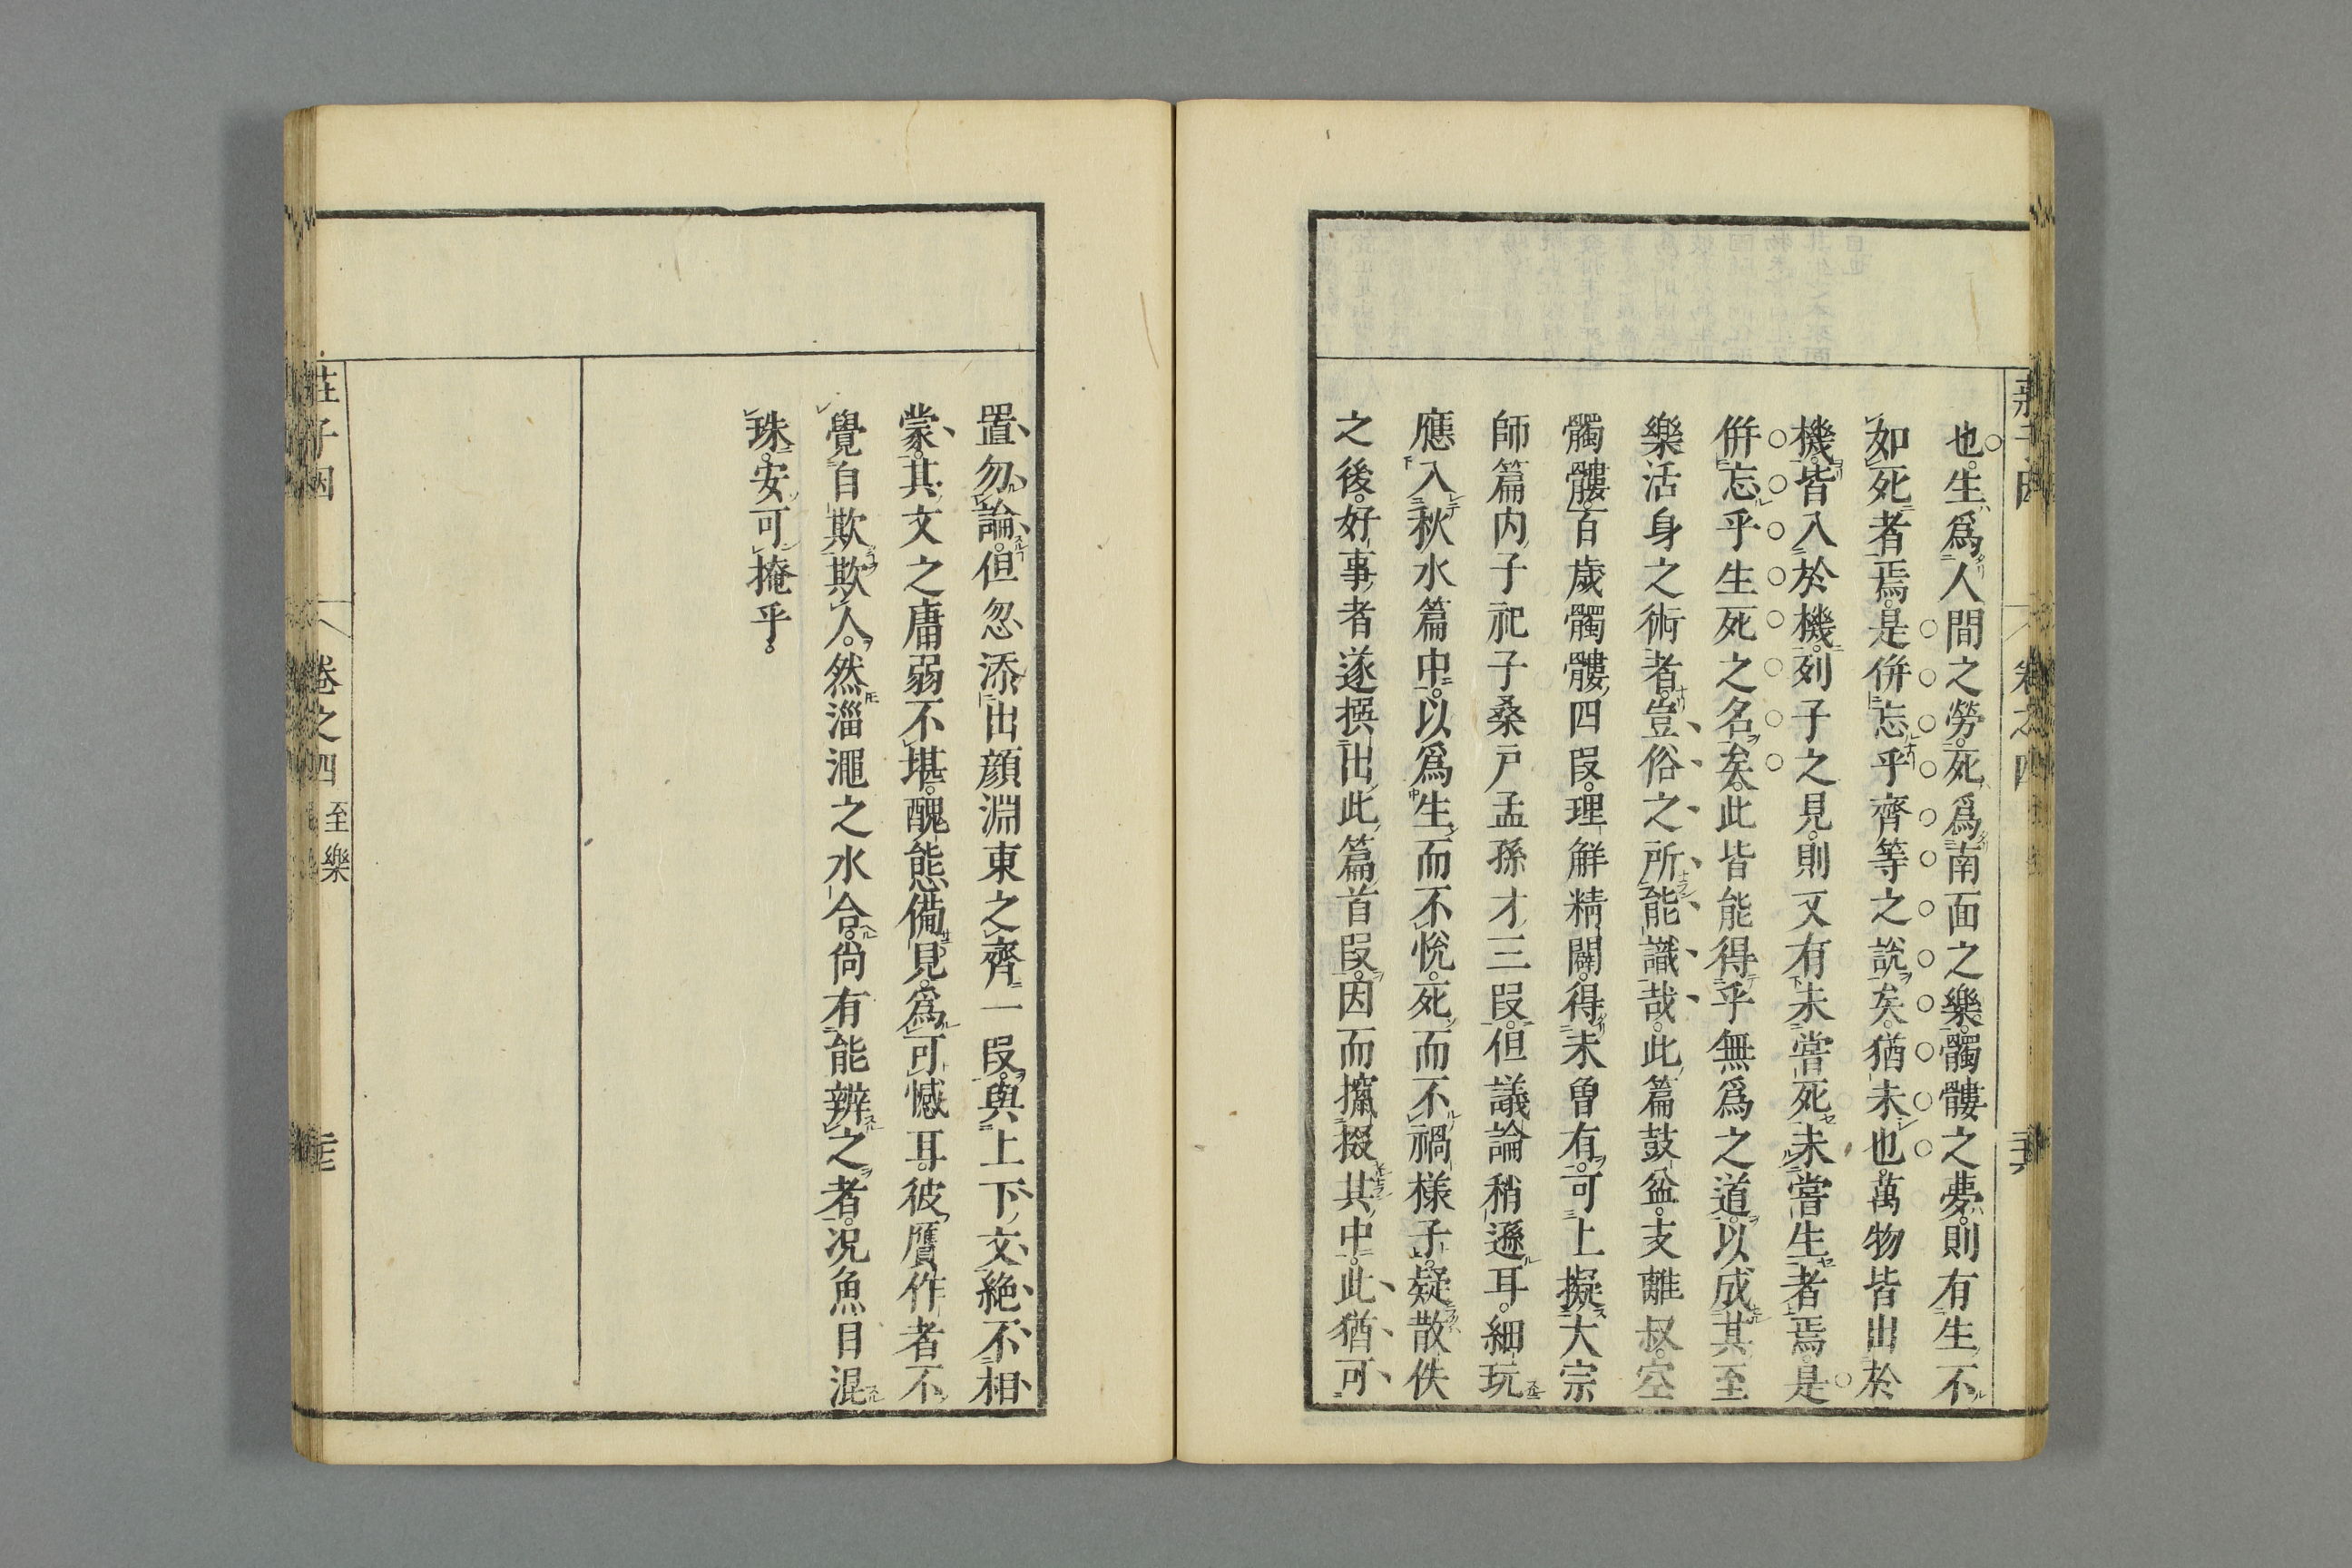 也。生爲人間之勞。死爲南面之樂。髑髏之夢。則有生不
如死者焉。是倂忘乎齊等之說矣。猶未也。萬物皆出於
機。皆入於機。列子之見。則又有未嘗死未嘗生者焉。是
倂忘乎生死之名矣。此皆能得乎無爲之道。以成其至
樂活身之術者。豈俗之所能識哉。此篇鼓盆。支離叔。空
髑髏。百歲髑髏。四段。理解精闢。得未曾有。可上擬大宗
師篇内。子祀子桑戸孟孫才三段。但議論稍遜耳。細玩
應入秋水篇中。以爲生而不悅。死而不禍樣子。疑散佚
之後。好事者遂撰出此篇首段。因而攛掇其中。此猶可
置勿論。但忽添出顔淵東之齊一段。與上下文絶不相
蒙。其文之庸弱不堪。醜態備見。爲可憾耳。彼贋作者不
覺自欺欺人。然淄澠之水合。尙有能辨之者。况魚目混
珠。安可掩乎。
莊子因
卷之四
至樂